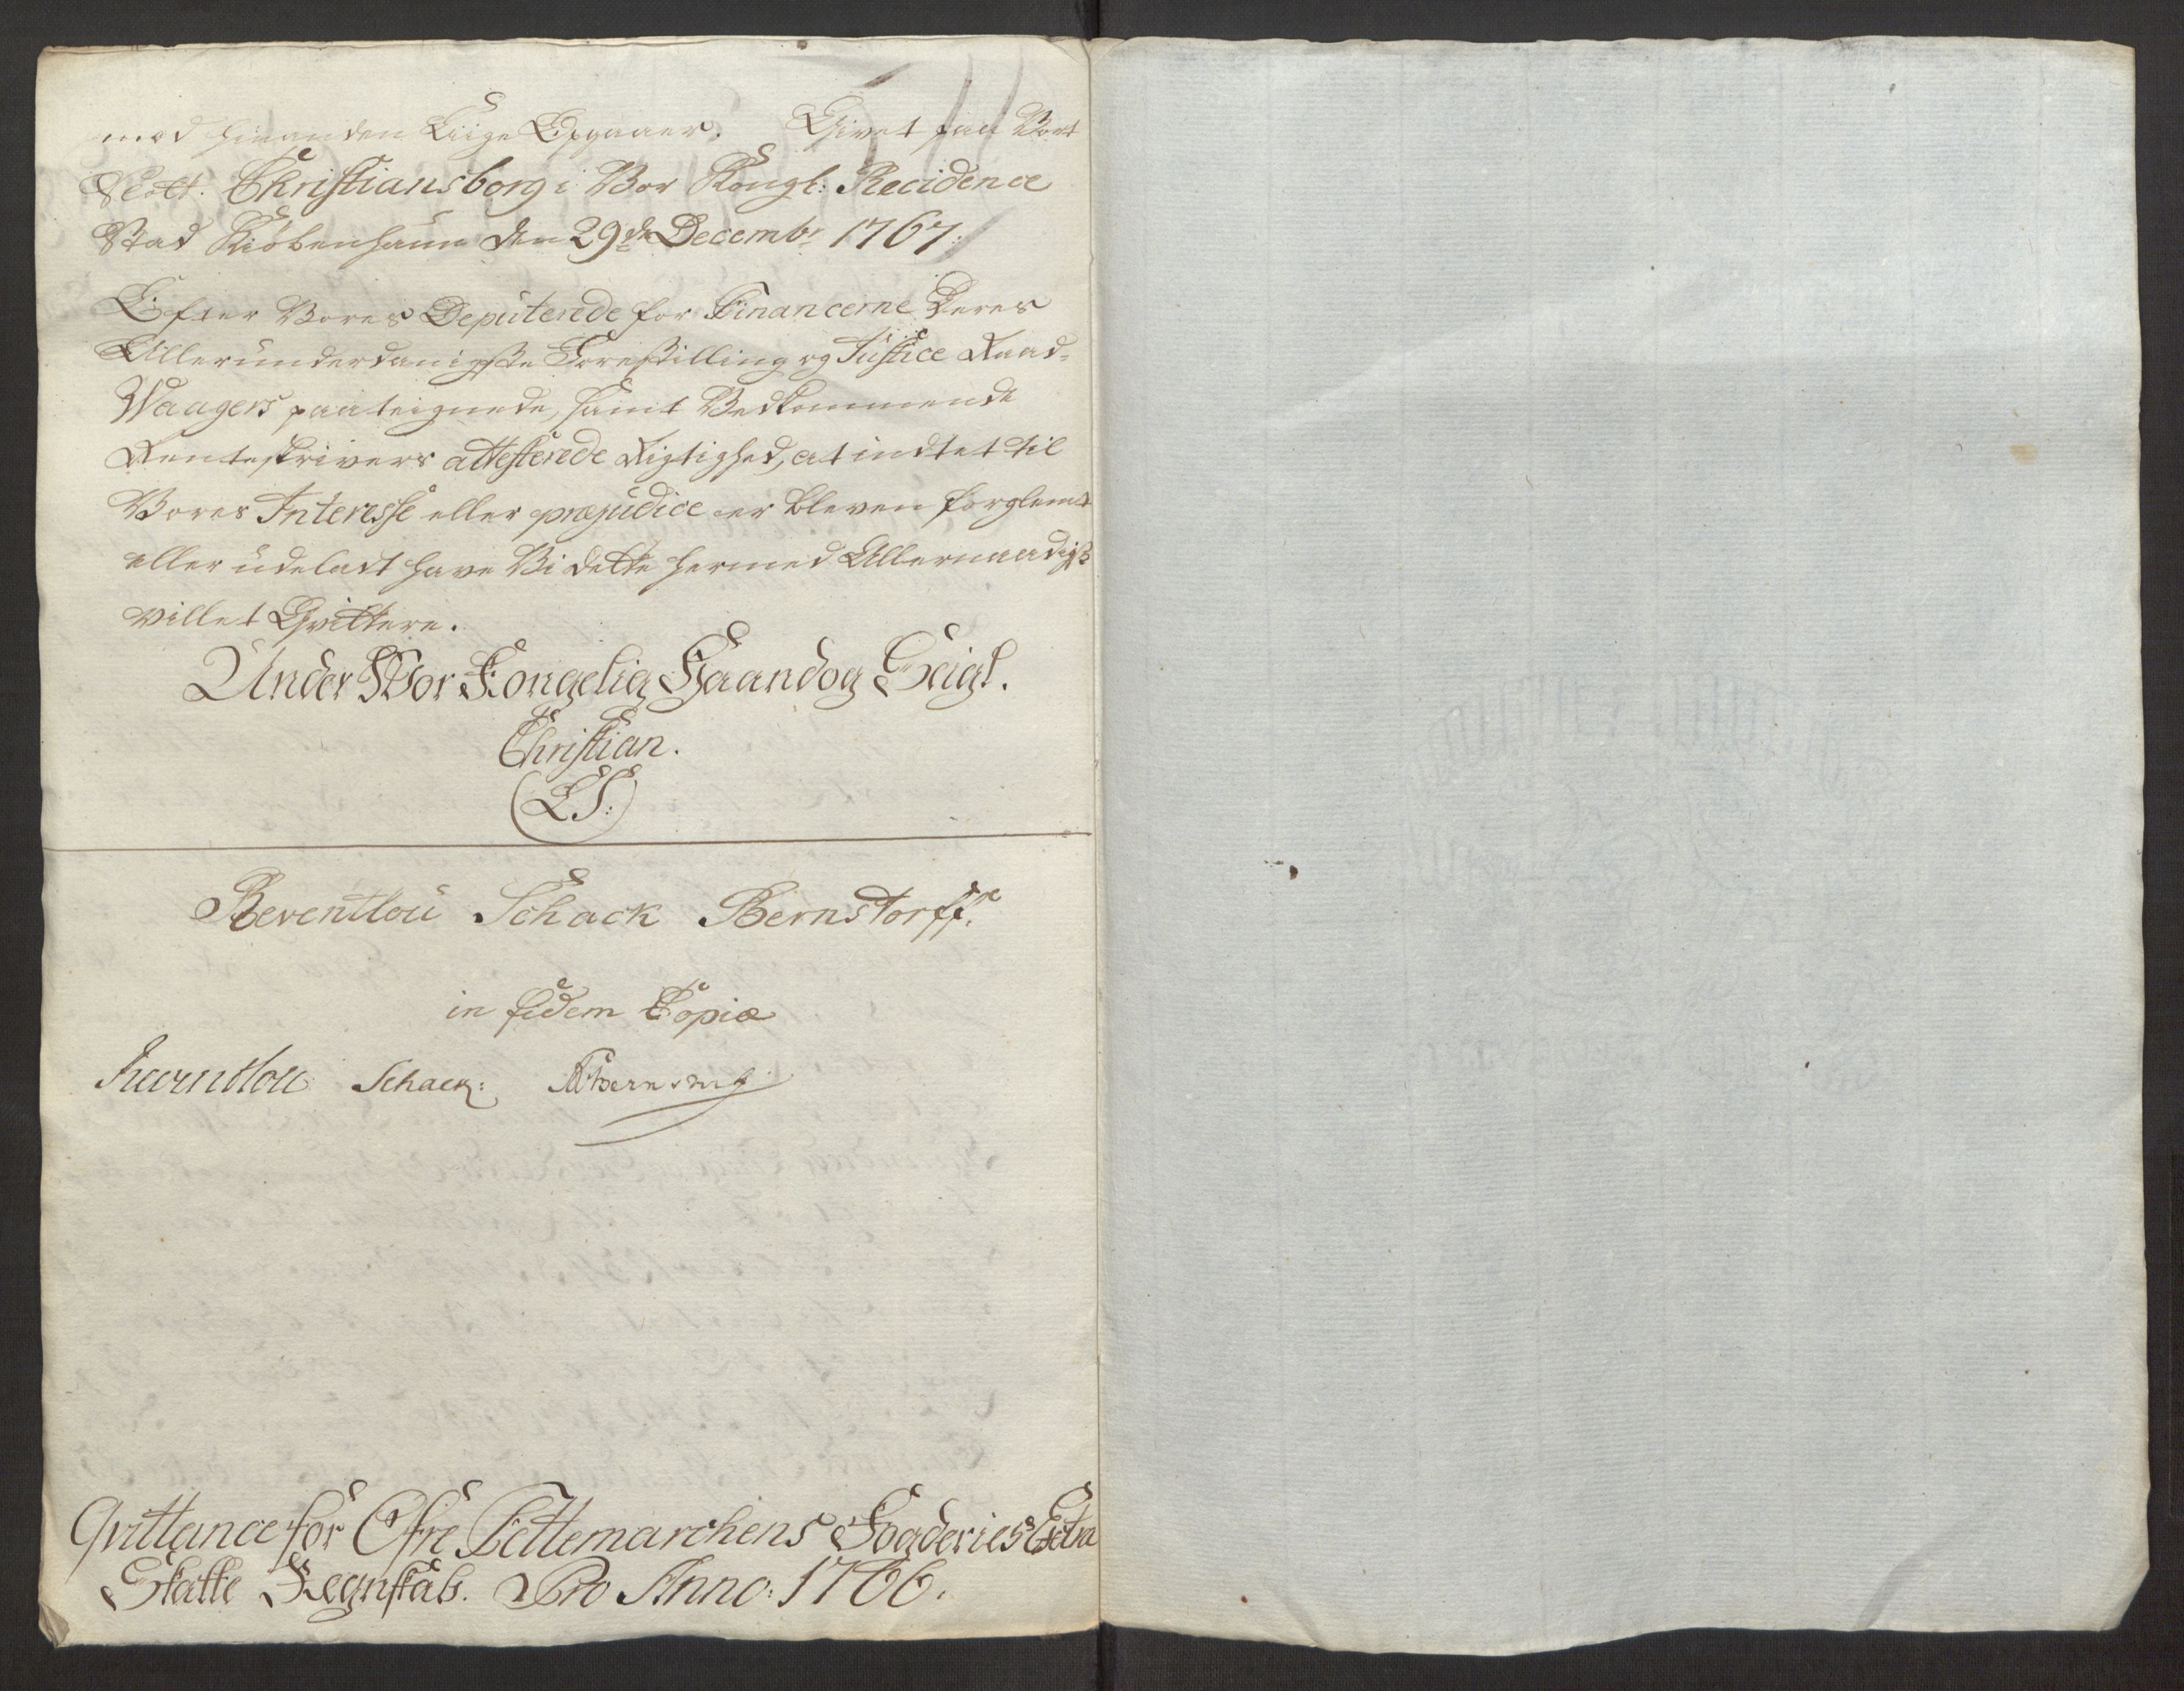 med hinanden Liige Opgaaer. Givet paa Vort
Slott. Christiansborg i Vor Kongl: Recidence
Stad Kiöbenhaun den 29de Decembr 1767.
Efter Vores Deputerede for Financerne Deres
Allerunderdanigste Forestilling og Justice Raad-
Waagers paateignede, samt Vedkommende
Renteskrivers attesterede Rigtighed, at indtet til
Vores Interesse eller præjudice er bleven forglemt
eller udeladt have Vi dette hermed Allernaadigst
villet Qvittere.
Under Vor Kongelig Haand og Seigl.
Christian.
(LS:)
Reventlou Schack Bernstorff.
in fidem Copiæ
Reventlou Schack:
Qvittance for Öfre Tellemarchens Fogderies Extra
Skatte Regnskab. Pro Anno: 1766.